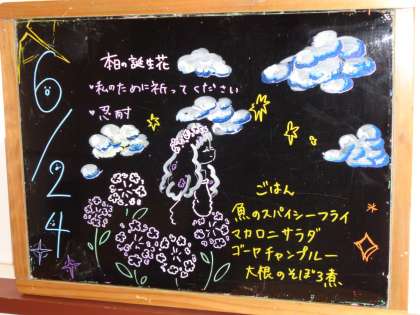 6/24
本日の誕生花
・私のために祈ってください
・忍耐
ごはん
魚のスパイシーフライ
マカロニサラダ
ゴーヤチャンプルー
大根のそぼろ煮